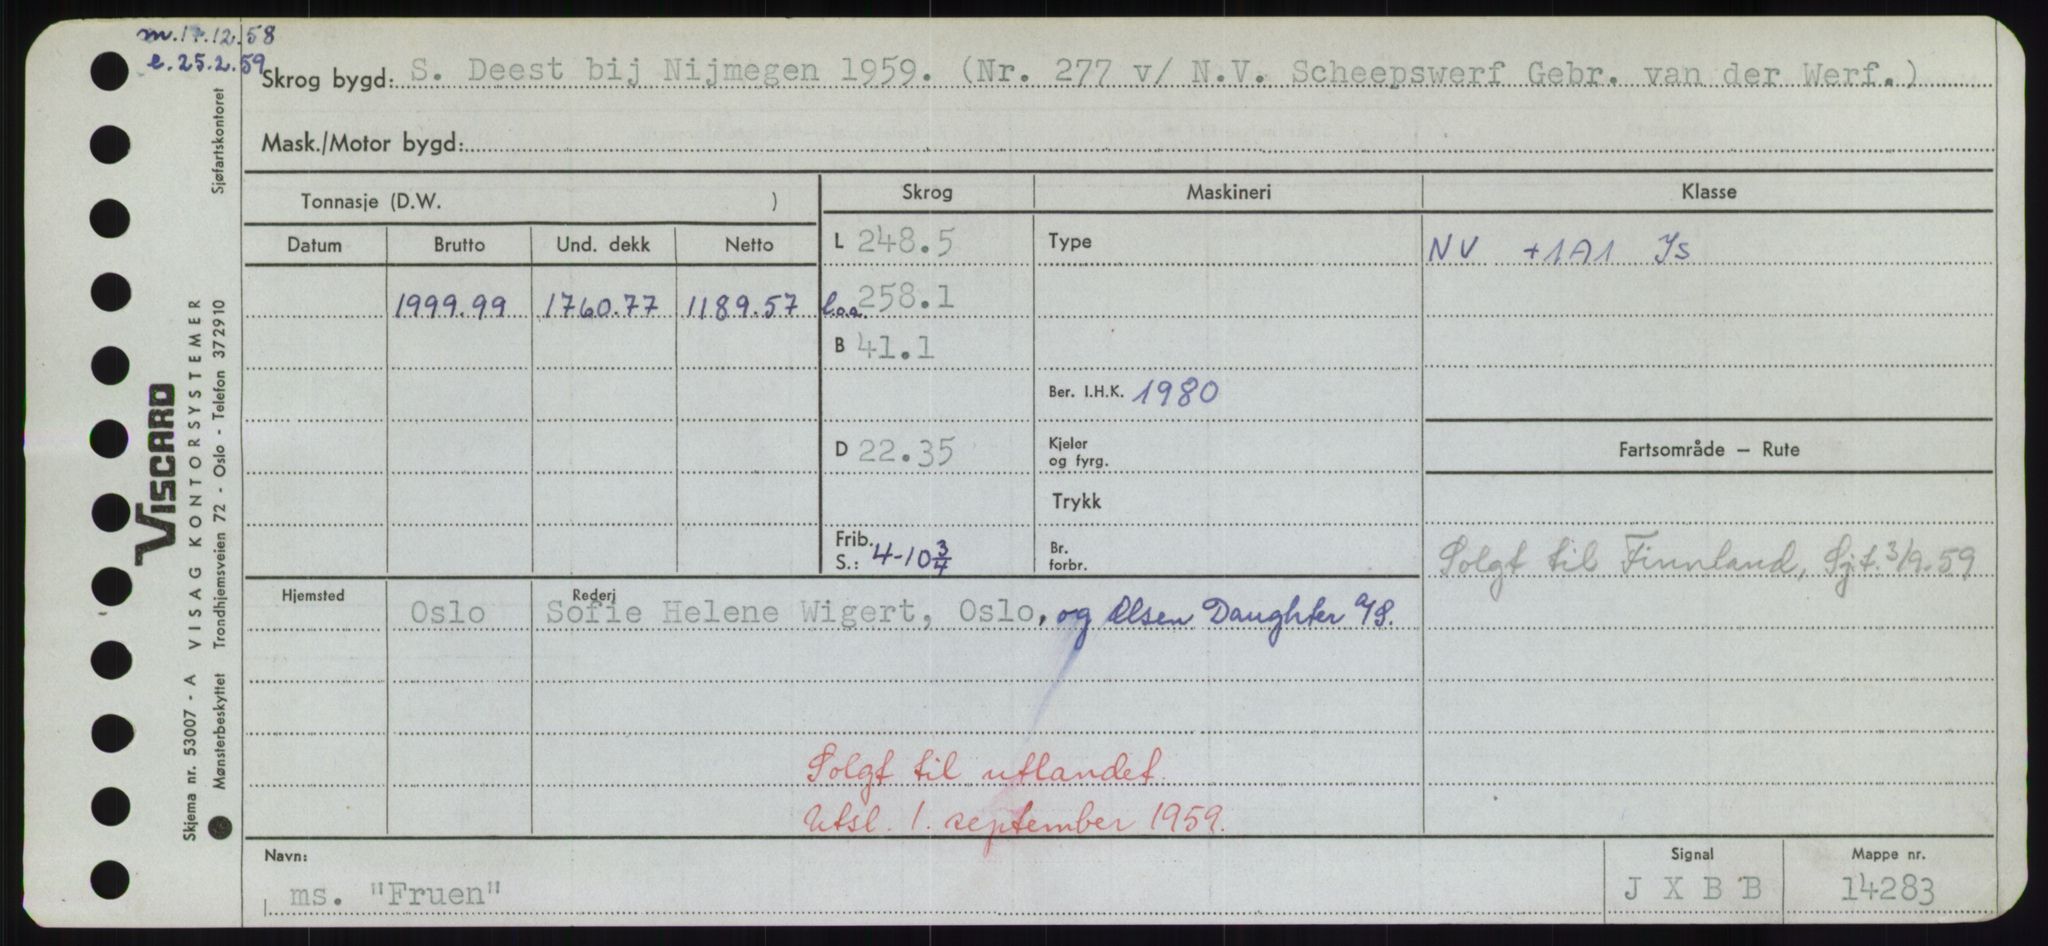 m. 17.12.58
e. 25.2.59
Skrog bygd: S. Deest bij Nijmegen 1959. (Nr. 277 v/ N.V. Scheepswerf Gebr. van der Werf.)
Mask./Motor bygd:
Tonnasje (D.W. ) Skrog Maskineri Klasse
Datum Brutto Und. dekk Netto L 248.5 Type NV +1A1 Is
1999.99 1760.77 1189.57 l.o.a. 258.1
B 41.1
Ber. I.H.K. 1980
D 22.35 Kjeler og fyrg. Fartsområde – Rute
Trykk
Frib. S.: 4-10 3/4 Br. forbr. Solgt til Finnland, Sjt. 3/9-59
Hjemsted Rederi
Oslo Sofie Helene Wigert, Oslo, og Olsen Daughter A/S.
Solgt til utlandet.
Utsl. 1. september 1959.
Navn: Signal Mappe nr.
ms. "Fruen" J X B B 14283
Skjema nr. 53007 - A VISAG KONTORSYSTEMER
Mønsterbeskyttet Trondhjemsveien 72 - Oslo - Telefon 372910 Sjøfartskontoret
VISCARD